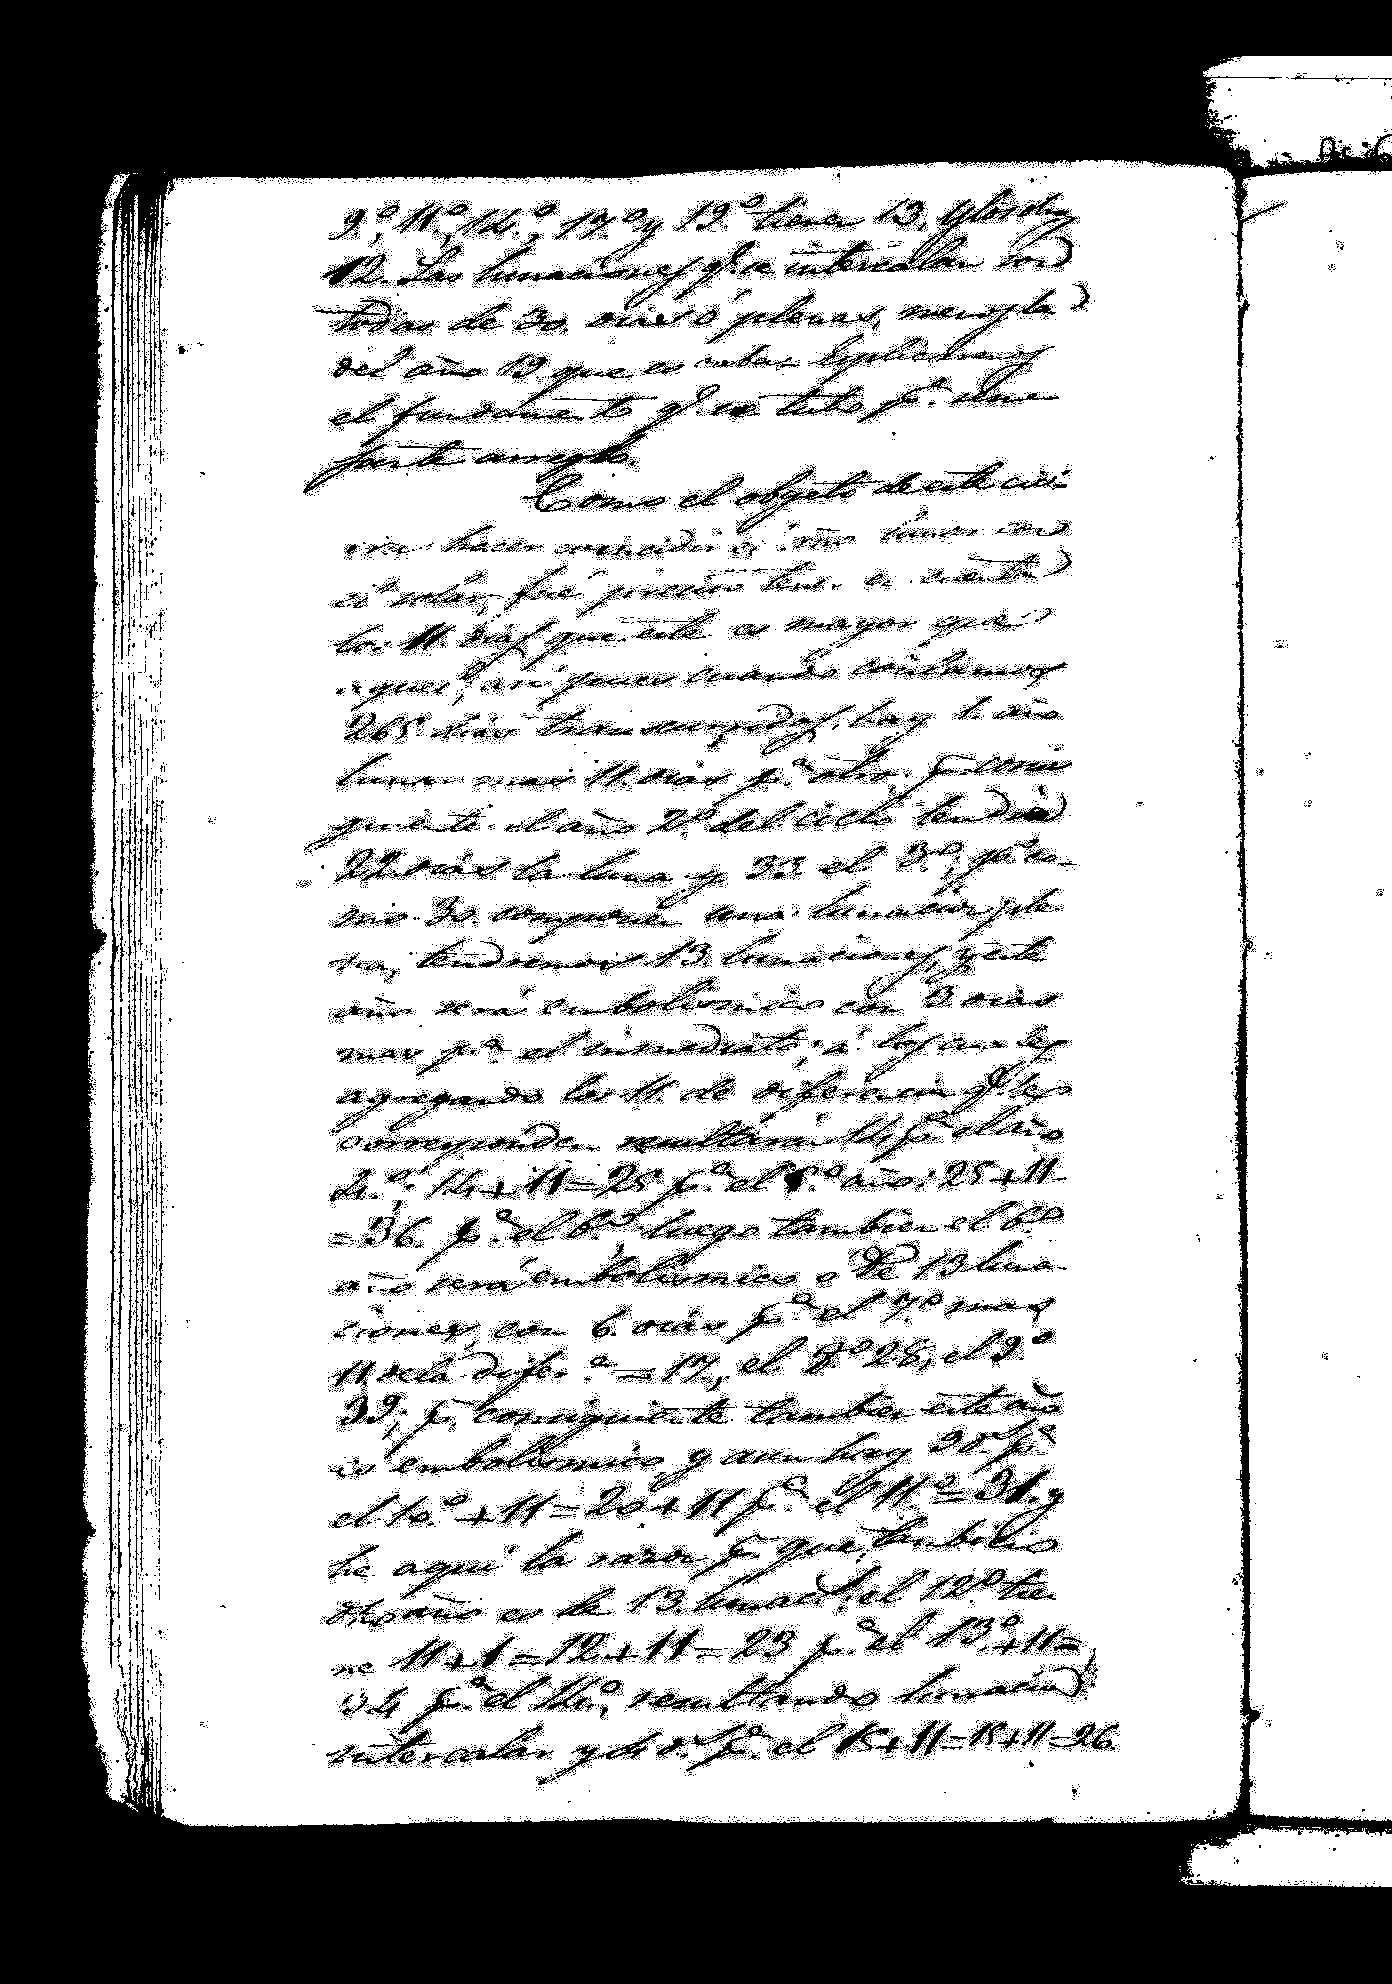 9.º, 11.º, 14.º, 17.º y 19.º tienen 13, y los dhs
12. Las lunaciones q.e se intercalan son
todas de 30 dias ó plenas, menos la
del año 19 que es cabas. Esplicaremos
el fundamento q.e se tubo p.a
parte arreglo.
Como el objeto de este ciclo
era hacer coincidir el año lunar con
el solar, fué preciso tener en cuenta
los 11 dias que este es mayor que
aquel, asi pues cuando contamos
365 dias transcurridos, hay 1 año
lunar mas 11 dias p.a otro. p.r consi
guiente el año 2.º del ciclo tendrá
22 dias la luna y 33 el 3.º, p.o co-
mo 30 componen una lunacion ple
na, tendremos 13 lunaciones, y este
año será embolismico con 3 dias
mas p.a el inmediato; á los cuales
agregando los 11 de diferencia q.e les
corresponden resultarán 14 p.a el año
4.º: 14+11=25 p.a el 5.º año: 25+11
=36 p.a el 6.º luego tambien el 6.º
año será embolismico o de 13 luna
ciones, con 6 dias p.a el 7.º mas
11 de la difer.a =17, el 8.º 28, el 9.º
39; p.r consiguiente tambien este año
es embolismico, y aun hay 9 p.a
el 10.º +11=20+11 p.a el 11.º=31. y
he aquí la razon p.r que tambien
dho año es de 13 lunac.s, el 12.º tie
ne 11+1=12+11=23 p.a el 13.º+11=
34 p.a el 14.º, resultando lunacion
intercalar y 4 d.s p.a el 15+11=15+11=26